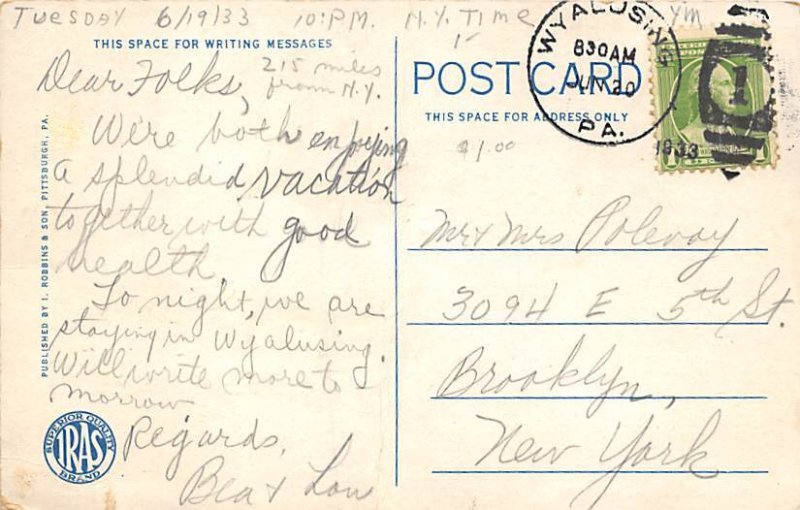 TUESDAY 6/19/33 10:PM. N.Y. TIME
THIS SPACE FOR WRITING MESSAGES
215 miles
from N.Y.
Dear Folks,
We're both enjoying
a splendid vacation
together with good
health.
To night, we are
staying in Wyalusing.
Will write more to
morrow
Regards,
Bea + Lou
PUBLISHED BY I. ROBBINS & SON, PITTSBURGH, PA.
SUPERIOR QUALITY
IRAS
BRAND
YM
POST CARD
THIS SPACE FOR ADDRESS ONLY
$1.00
WYALUSING
830 AM
JUN 20
1933
PA.
1
Mr + Mrs Polevoy
3094 E 5th St.
Brooklyn,
New York